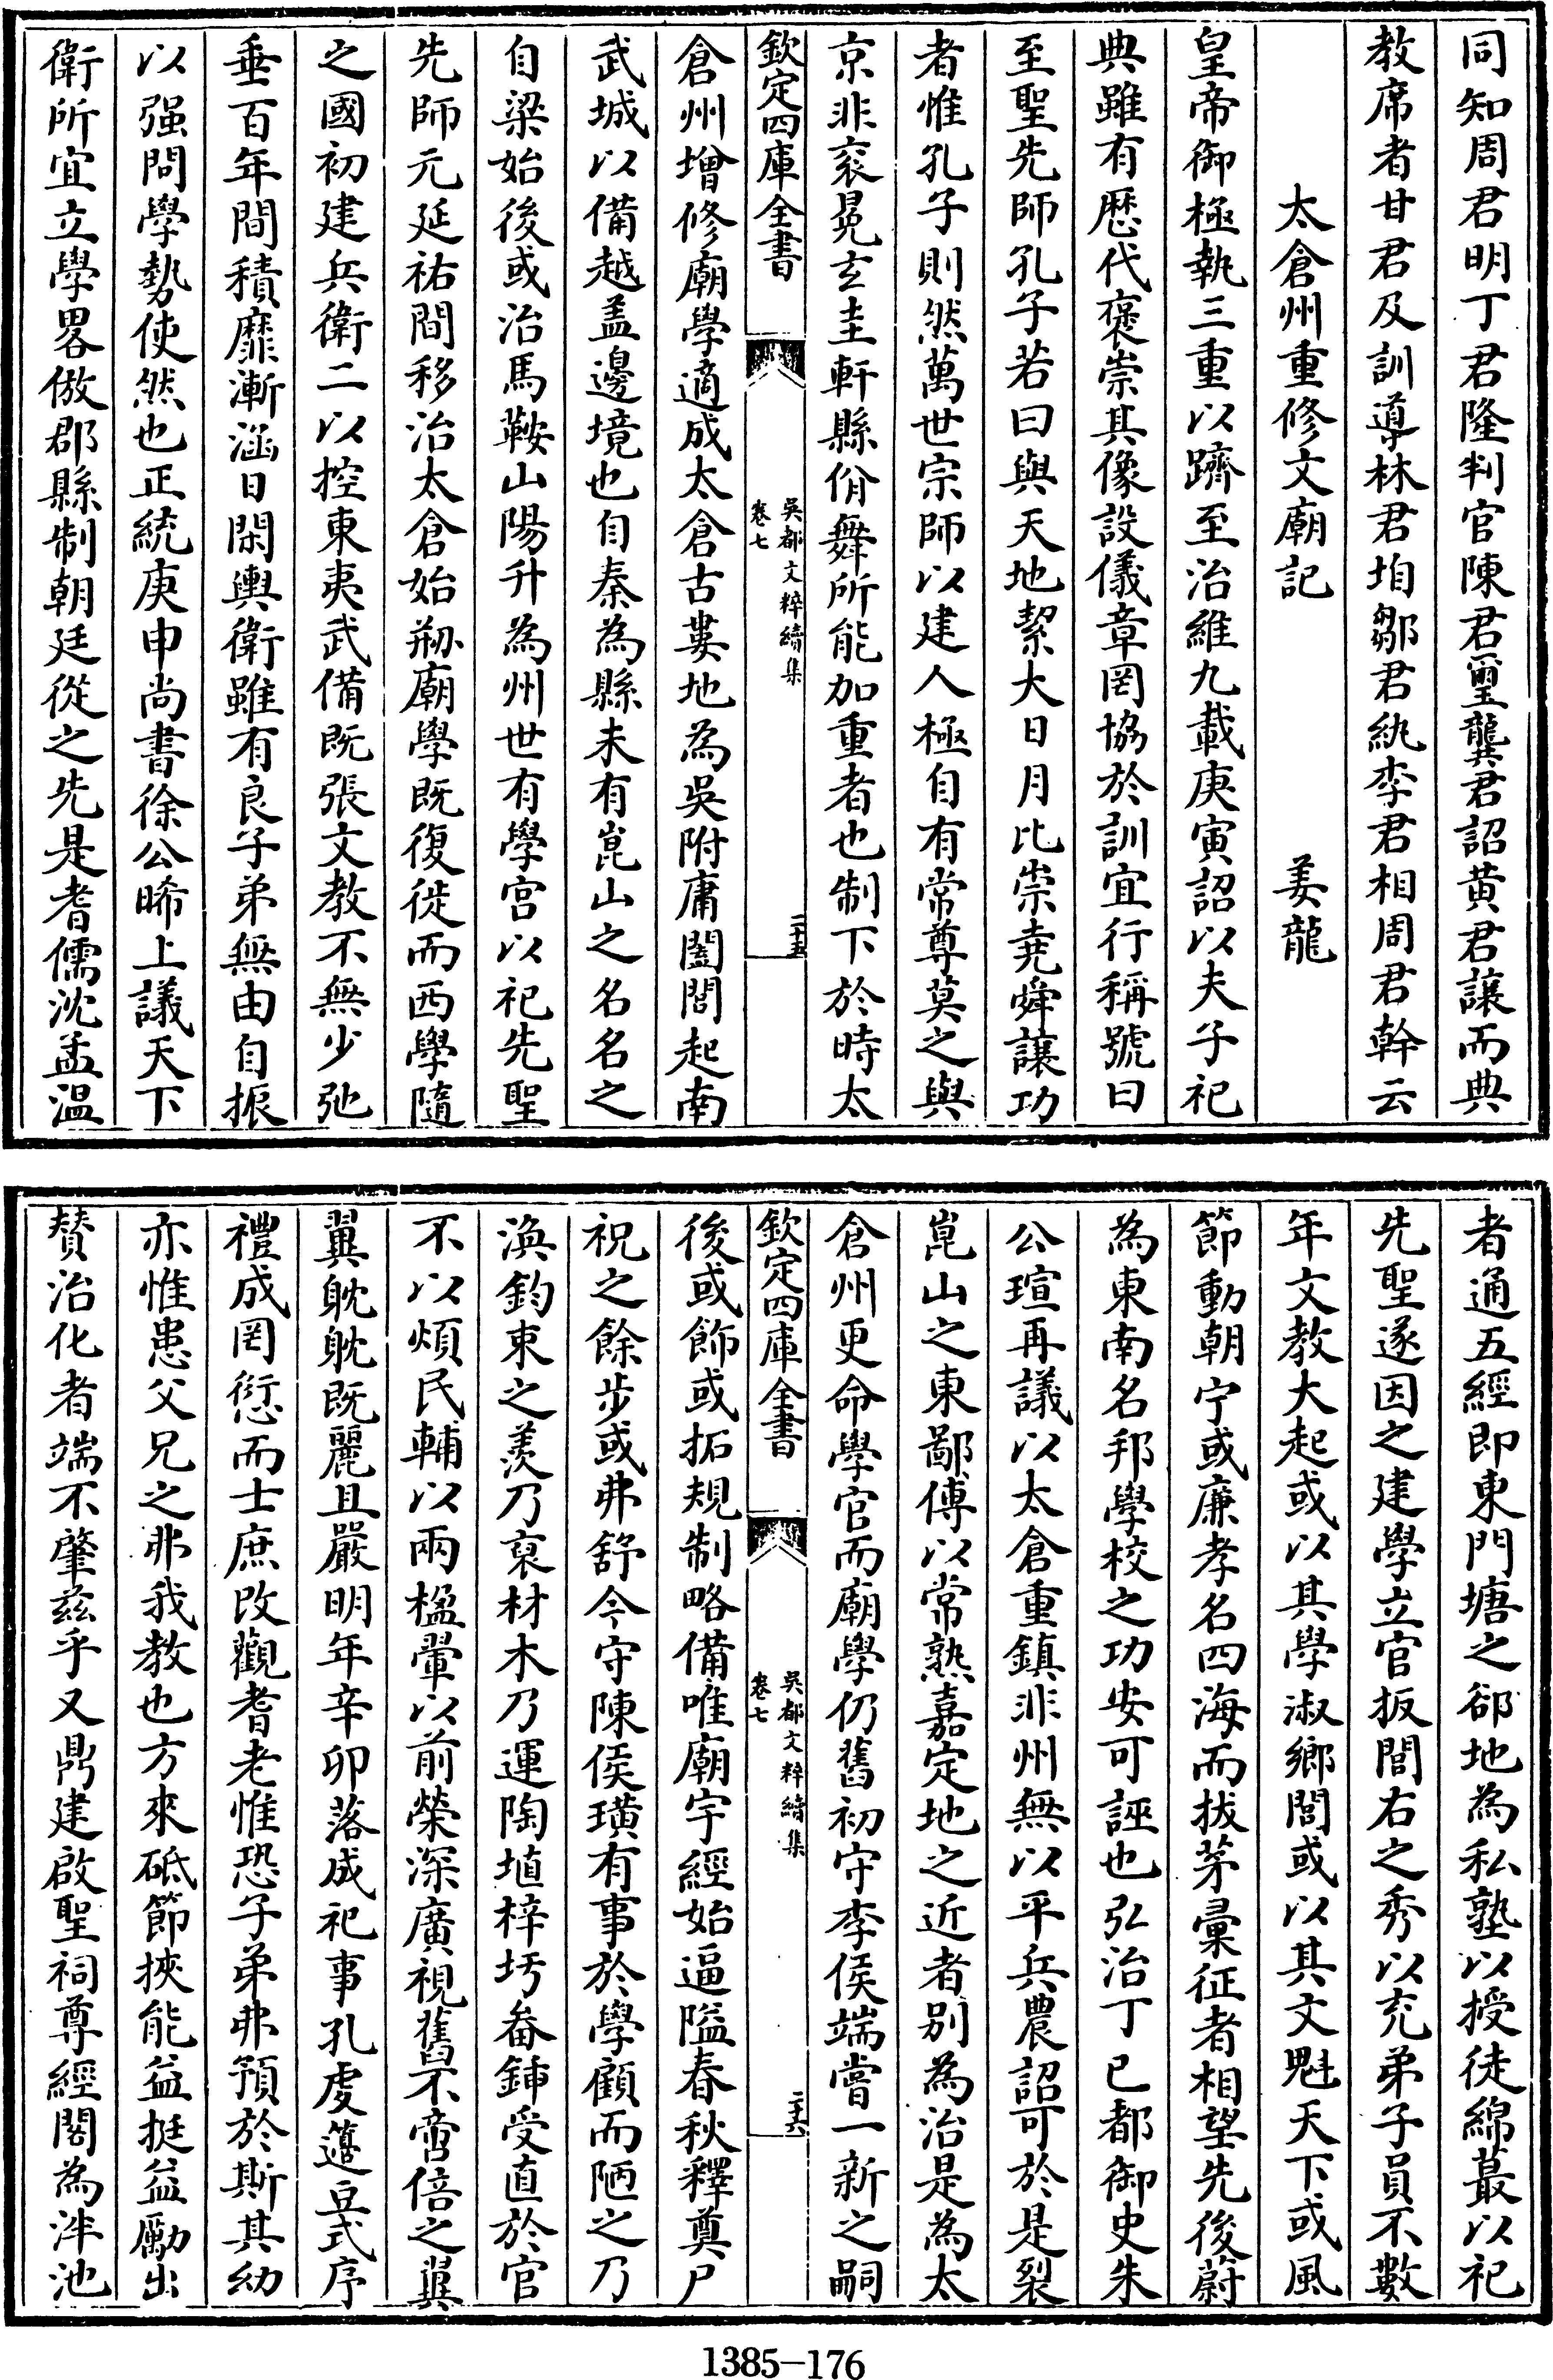 同知周君明丁君隆判官陳君璽龔君詔黄君讓而典
教席者甘君及訓導林君垍鄒君紈李君相周君幹云
太倉州重修文廟記　姜龍
皇帝御極執三重以躋至治維九載庚寅詔以夫子祀
典雖有歷代褒崇其像設儀章罔協於訓宜行稱號曰
至聖先師孔子若曰與天地絜大日月比崇堯舜讓功
者惟孔子則然萬世宗師以建人極自有常尊莫之與
京非衮冕玄圭軒縣佾舞所能加重者也制下於時太
欽定四庫全書
吳都文粹續集
卷七
二十五
倉州增修廟學適成太倉古婁地為吳附庸闔閭起南
武城以備越盖邊境也自秦為縣未有崑山之名名之
自梁始後或治馬鞍山陽升為州世有學宫以祀先聖
先師元延祐間移治太倉始剏廟學既復徙而西學隨
之國初建兵衛二以控東夷武備既張文教不無少弛
垂百年間積靡漸涵日閑輿衛雖有良子弟無由自振
以强問學勢使然也正統庚申尚書徐公晞上議天下
衛所宜立學畧倣郡縣制朝廷從之先是耆儒沈孟温
者通五經即東門塘之郤地為私塾以授徒綿蕞以祀
先聖遂因之建學立官扳閭右之秀以充弟子員不數
年文教大起或以其學淑鄉閭或以其文魁天下或風
節動朝宁或廉孝名四海而拔茅彙征者相望先後蔚
為東南名邦學校之功安可誣也弘治丁巳都御史朱
公瑄再議以太倉重鎮非州無以平兵農詔可於是裂
崑山之東鄙傅以常熟嘉定地之近者别為治是為太
倉州更命學官而廟學仍舊初守李侯端嘗一新之嗣
欽定四庫全書
吳都文粹續集
卷七
二十六
後或飾或拓規制略備唯廟宇經始逼隘春秋釋奠尸
祝之餘步或弗舒今守陳侯璜有事於學顧而陋之乃
渙鈞束之羨乃裒材木乃運陶埴梓圬畚鍤受直於官
不以煩民輔以兩楹翬以前榮深廣視舊不啻倍之翼
翼眈眈既麗且嚴明年辛卯落成祀事孔虔籩豆式序
禮成罔愆而士庶改觀耆老惟恐子弟弗預於斯其幼
亦惟患父兄之弗我教也方來砥節挾能益挺益勵出
賛治化者端不肇兹乎又鼎建啟聖祠尊經閣為泮池
1385-176